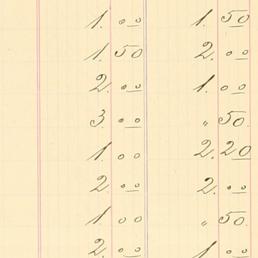 1. 00 1. 50
1. 50 2. 00
2. 00 1. 00
3. 00 " 50.
1 00 2. 20
2. 00 2. 00
1 00 " 50.
2. 00 1. 00